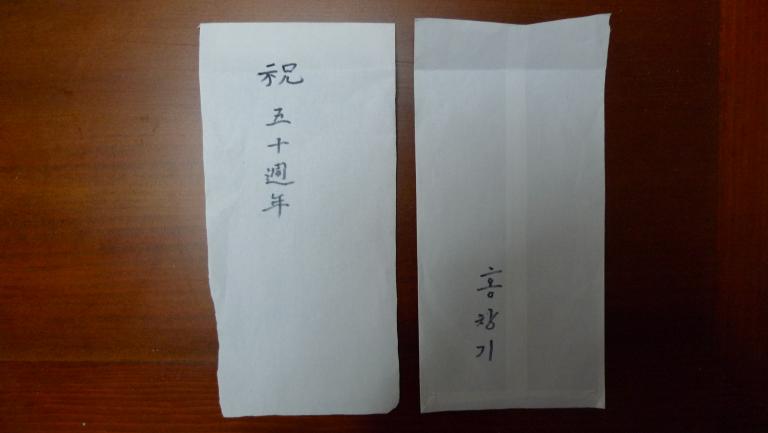 祝 五十週年
홍창기